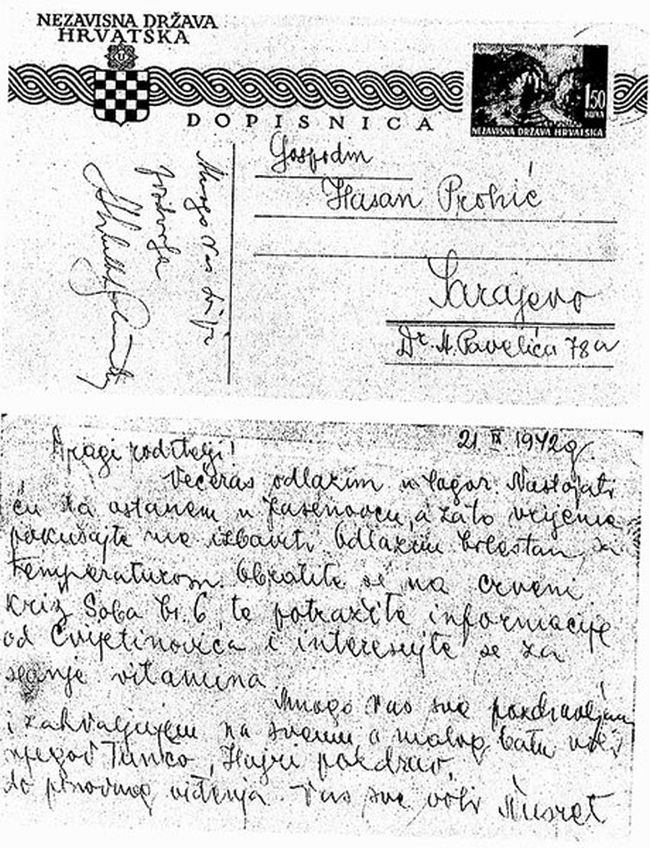 NEZAVISNA DRŽAVA
HRVATSKA
DOPISNICA
1.50
KUNA
NEZAVISNA DRŽAVA HRVATSKA
Gospodin
Hasan Prohić
Sarajevo
Dr. A. Pavelića 78a
Mnogo Vas
21. IX 1942g.
Dragi roditelji!
Večeras odlazim u logor. Nastojati
ću da ostanem u Jasenovcu, a za to vrijeme
pokušajte me izbaviti. Odlazim bolestan, sa
temperaturom. Obratite se na crveni
križ Soba br. 6, te potražite informacije
od Cvijetinovića i interesujte se za
slanje vitamina
Mnogo Vas sve pozdravljam
i zahvaljujem na svemu a malog batu voli
njegov Hajri pozdrav,
do ponovnog viđenja. Vas sve voli Nusret